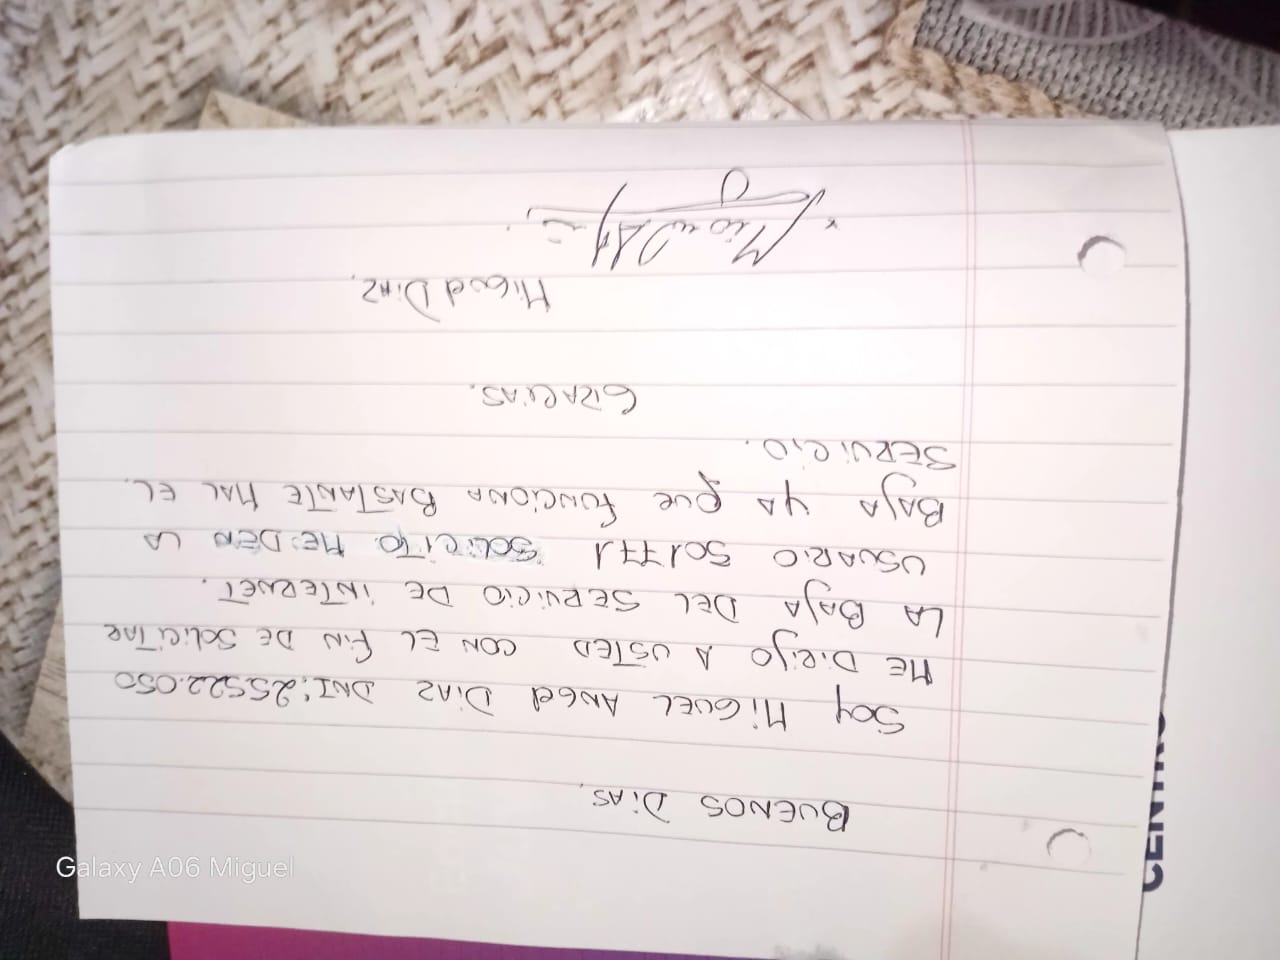 BUENOS DiAS.
Soy MiGUEL ANGel DiAZ DNI: 25522.050
ME DiRijO A USTED CON EL FiN DE SOLiCiTAR
LA BAjA DEL SERViCiO DE iNTERNET.
USUARiO 501771 SOLiCiTO ME DEN LA
BAjA YA QUE FUNCiONA BASTANTE MAL EL.
SERViCiO.
GRACiAS.
MiGuel DiAZ.
CENTRO
Galaxy A06 Miguel